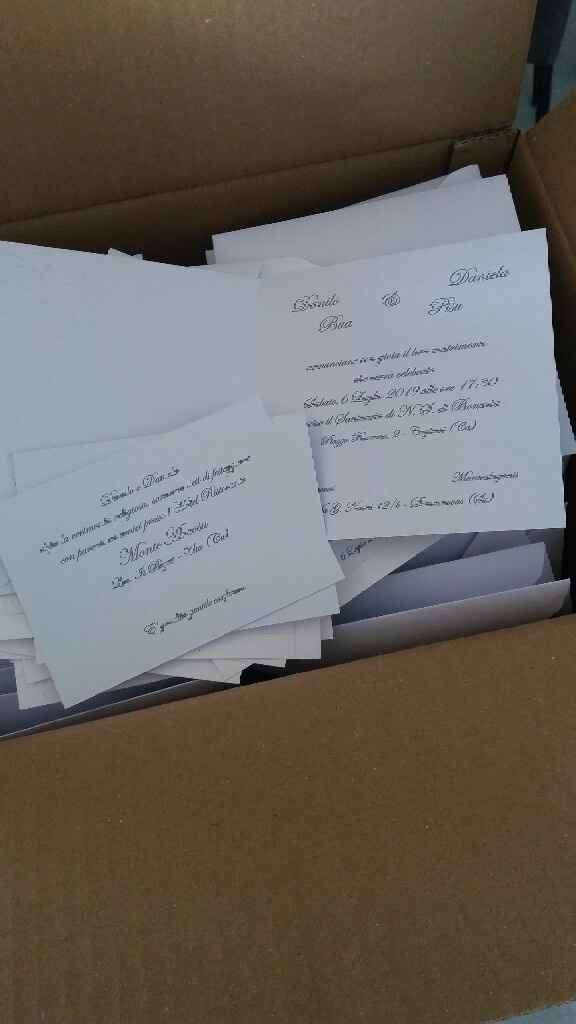 Danilo & Daniela
Bua Pisu
annunciano con gioia il loro matrimonio
che verrà celebrato
Sabato, 6 Luglio 2019 alle ore 17:30
il Santuario di N.S. di Bonaria
Piazza Bonaria, 2 - Cagliari (Ca)
G. 12/4 -
Danilo e Daniela
dopo la cerimonia religiosa, saranno lieti di festeggiare
con parenti ed amici presso l' Hotel Ristorante
Monte Arcosu
Loc. Is - Uta (Ca)
E' gradita gentile conferma